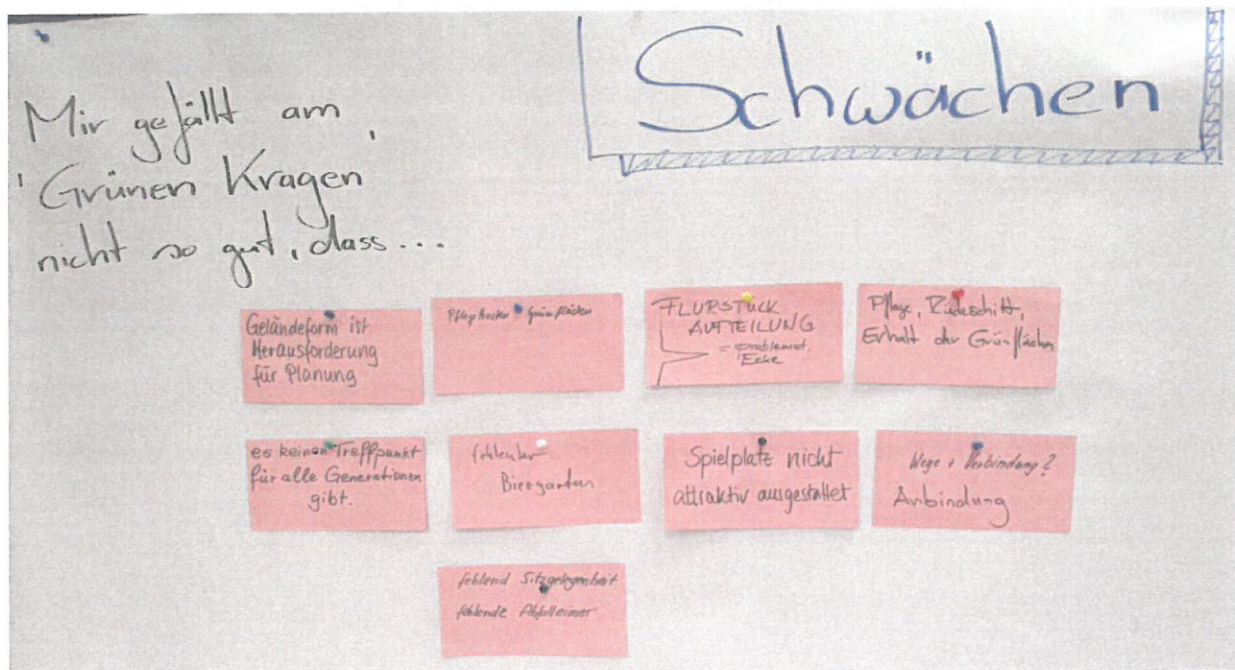 Schwächen
Mir gefällt am
'Grünen Kragen'
nicht so gut, dass...
Geländeform ist
Herausforderung
für Planung
Pflegekosten Grünflächen
FLURSTÜCK
AUFTEILUNG
= problemat.
Ecke
Pflege, Rückschnitt,
Erhalt der Grünflächen
es keinen Treffpunkt
für alle Generationen
gibt.
fehlender
Biergarten
Spielplatz nicht
attraktiv ausgestaltet
Wege + Verbindung?
Anbindung
fehlend Sitzgelegenheit
fehlende Abfalleimer